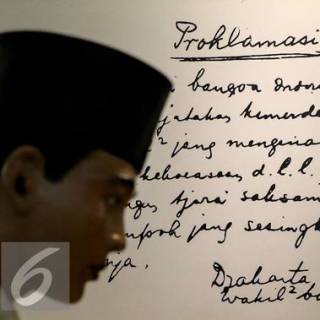 Proklamasi
bangsa Indon
jatakan kemerde
2 jang mengena
keboeasaan d.l.l.,
tjara saksam
tempoh jang sesingk
nja.
Djakarta
Wakil2 ba
6